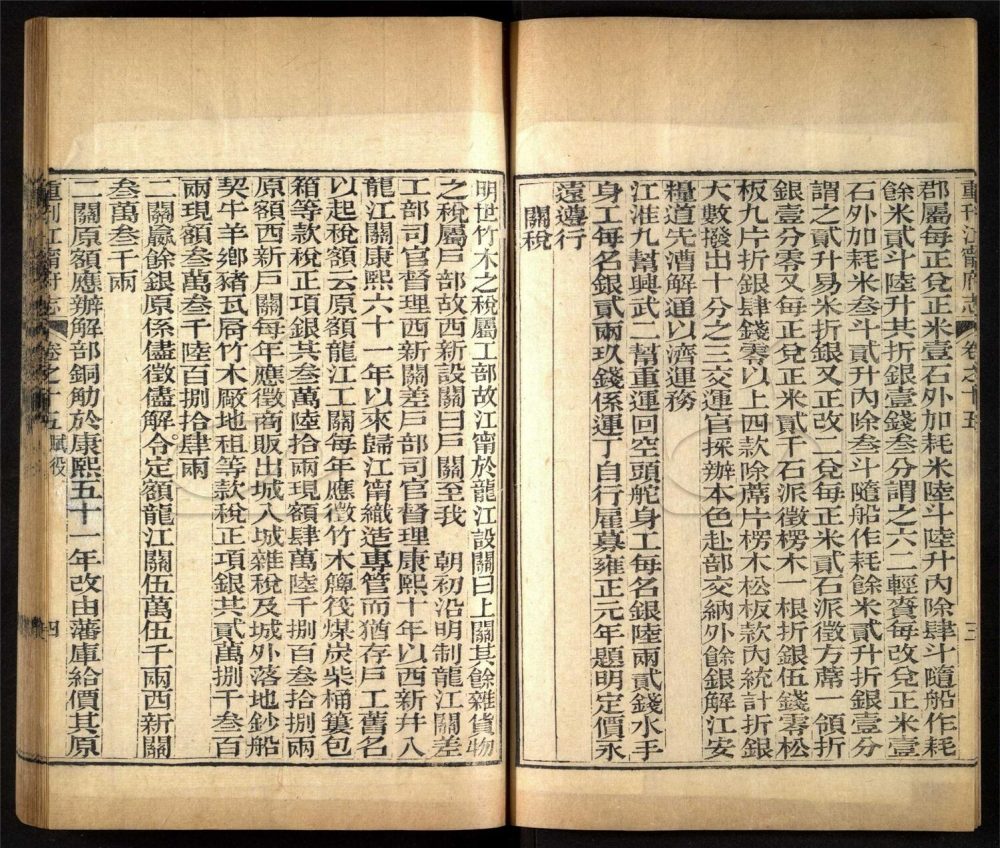 重刊江甯府志 卷之十五 三
郡屬每正兌正米壹石外加耗米陸斗陸升內除肆斗隨船作耗
餘米貳斗陸升其折銀壹錢叁分謂之六二輕賫每改兌正米壹
石外加耗米叁斗貳升內除叁斗隨船作耗餘米貳升折銀壹分
謂之貳升易米折銀又正改二兌每正米貳石派徵方蓆一領折
銀壹分零又每正兌正米貳千石派徵楞木一根折銀伍錢零松
板九片折銀肆錢零以上四款除蓆片楞木松板款內統計折銀
大數撥出十分之三交運官採辦本色赴部交納外餘銀解江安
糧道先漕解通以濟運務
江淮九幫興武二幫重運回空頭舵身工每名銀陸兩貳錢水手
身工每名銀貳兩玖錢係運丁自行雇募雍正元年題明定價永
遠遵行
關稅
明世竹木之稅屬工部故江甯於龍江設關曰上關其餘雜貨物
之稅屬戶部故西新設關曰戶關至我 朝初沿明制龍江關差
工部司官督理西新關差戶部司官督理康熙十年以西新幷入
龍江關康熙六十一年以來歸江甯織造專管而猶存戶工舊名
以起稅額云原額龍江工關每年應徵竹木簰筏煤炭柴桶簍包
箱等款稅正項銀共叁萬陸拾兩現額肆萬陸千捌百叁拾捌兩
原額西新戶關每年應徵商販出城入城雜稅及城外落地鈔船
契牛羊鄉豬瓦屑竹木廠地租等款稅正項銀共貳萬捌千叁百
兩現額叁萬叁千陸百捌拾肆兩
二關贏餘銀原係儘徵儘解今定額龍江關伍萬伍千兩西新關
叁萬叁千兩
二關原額應辦解部銅觔於康熙五十一年改由藩庫給價其原
重刊江甯府志 卷之十五 賦役 四